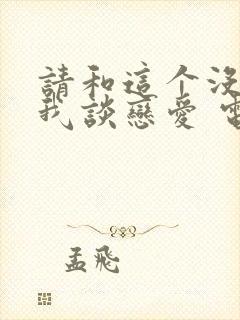 請和這个沒
我談戀愛
孟飛